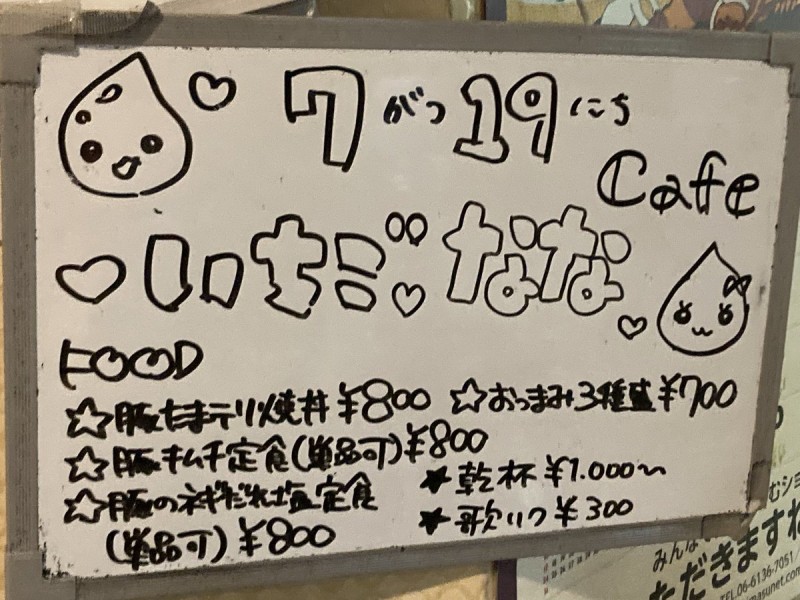 7がつ19にち
Cafe
いちご なな
FOOD
☆豚たまテリ焼丼 ¥800
☆おつまみ3種盛 ¥700
☆豚キムチ定食(単品可) ¥800
★乾杯 ¥1.000〜
☆豚のネギだれ塩定食
(単品可) ¥800
★歌1つ ¥300
みんな
ただきますね
TEL.06-6136-7051